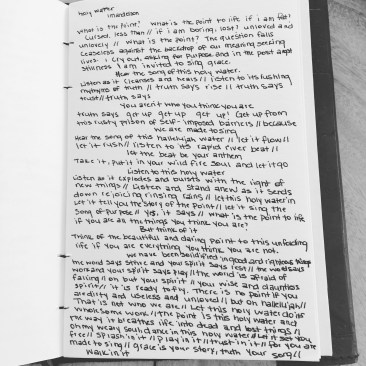 holy water
imandelson
What is the point? What is the point to life if i am fat?
Cursed, less than // if i am boring, lost? unloved and
unlovely // what is the point? The question falls
ceaseless against the backdrop of our meaning seeking
lives. I cry out, asking for purpose and in the post
stillness I am invited to sing grace.
Hear the song of this holy water.
Listen as it cleanses and heals // listen to its rushing
rhythms of truth // truth says rise // truth says
trust // truth says
You aren't who you think you are
truth says get up get up get up! Get up from
this rusty prison of self-imposed barriers // because
we are made to sing
Hear the song of this hallelujah water // let it flow //
let it rush // listen to its rapid river beat //
let the beat be your anthem
Take it, put it in your wild fire soul and let it go
Listen to this holy water
Listen as it explodes and bursts with the light of
new things // Listen and stand anew as it sends
down rejoicing rinsing rains // let this holy water in
Let it tell you the story of the point // let it sing the
song of purpose // Yes, it says // what is the point to life
if you are all the things you think you are?
But think of it
Think of the beautiful and daring point to this unfading
life if you are everything you think you are not.
We have been solidified in good and righteous things
The word says shine and your spirit says rest // the world says
work and your spirit says play // the world is afraid of
failing // oh but your spirit // your wise and dauntless
spirit // it is ready to fly. There is no point if you
are dirty and useless and unloved // but oh hallelujah //
That is not who we are // Let this holy water do its
wholesome work // the point is this holy water and
the way it breathes life into dead and lost things //
oh my weary soul dance in this holy water // let it set you
free // splash in it // play in it // trust in it // for you are
made to sing // grace is your story, truth your song //
walk in it